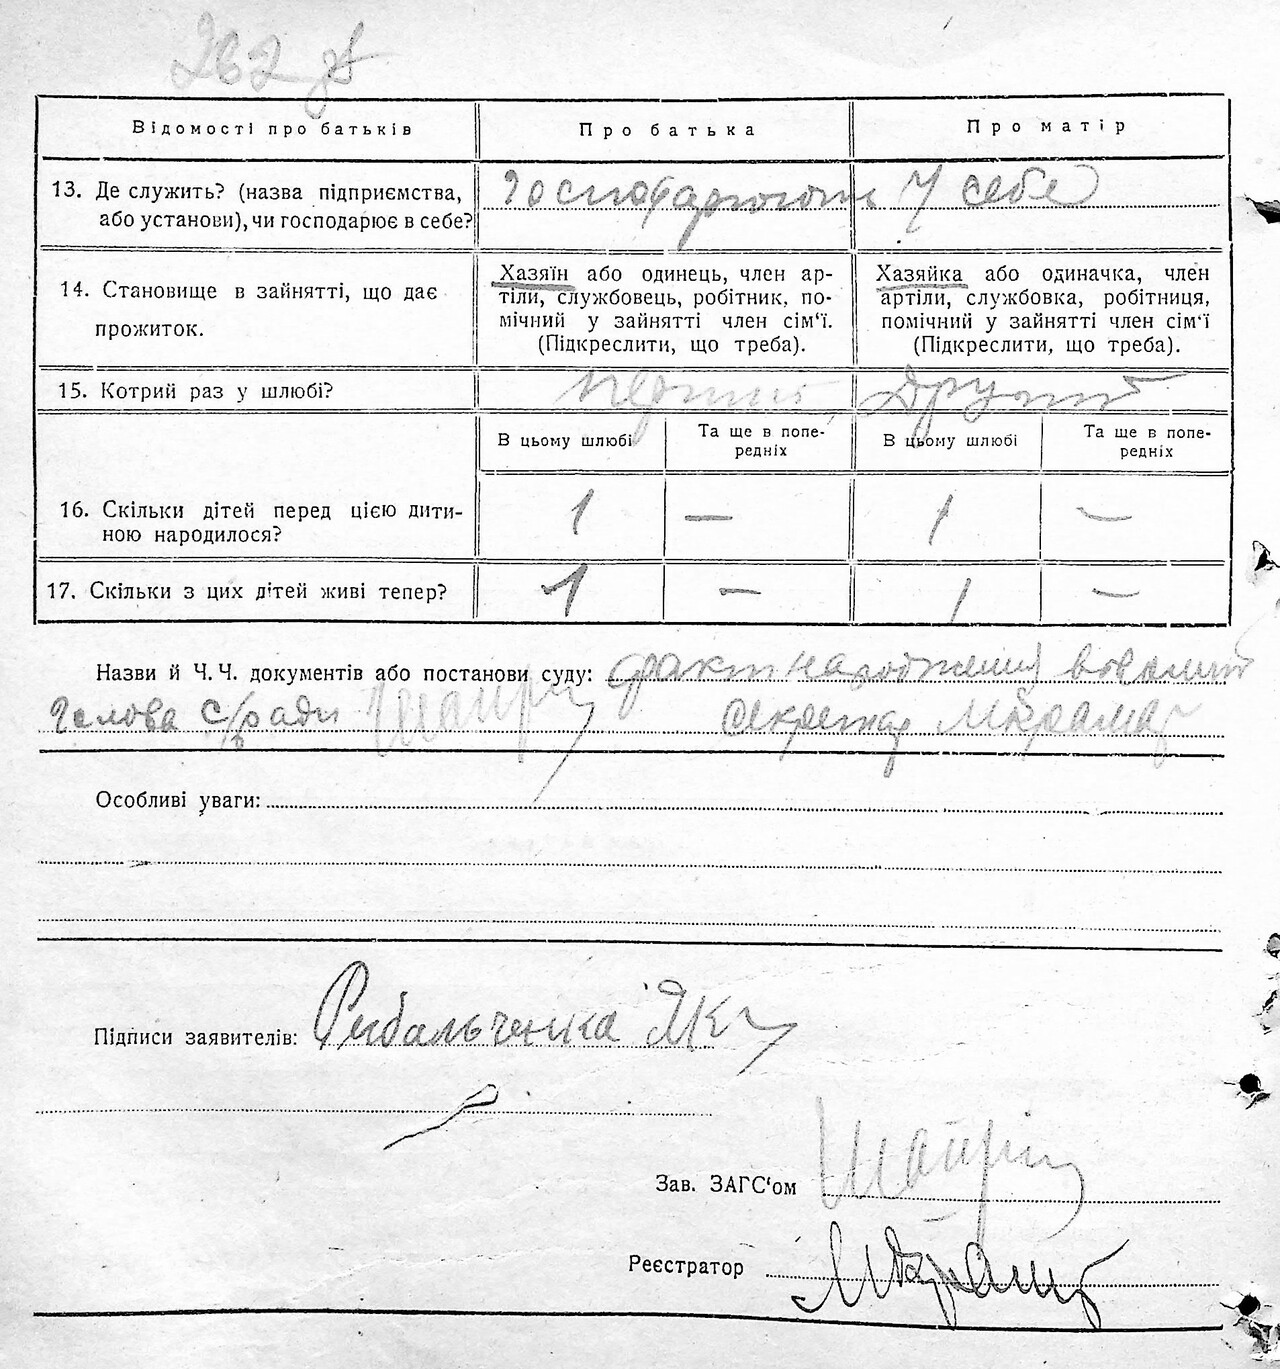 262 зв
Відомості про батьків
Про батька
Про матір
13. Де служить? (назва підприємства, або установи), чи господарює в себе?
Господарюють у себе
14. Становище в зайнятті, що дає прожиток.
Хазяїн або одинець, член ар-
тіли, службовець, робітник, по-
мічний у зайнятті член сім'ї.
(Підкреслити, що треба).
Хазяйка або одиначка, член
артіли, службовка, робітниця,
помічний у зайнятті член сім'ї
(Підкреслити, що треба).
15. Котрий раз у шлюбі?
перший
Другий
В цьому шлюбі
Та ще в попе-
редніх
В цьому шлюбі
Та ще в попе-
редніх
16. Скільки дітей перед цією дити-
ною народилося?
1 — 1 —
17. Скільки з цих дітей живі тепер?
1 — 1 —
Назви й Ч. Ч. документів або постанови суду: факт народження
Голова с/ради секретар
Особливі уваги:
Підписи заявителів: Рибальченка
Зав. ЗАГС'ом
Реєстратор